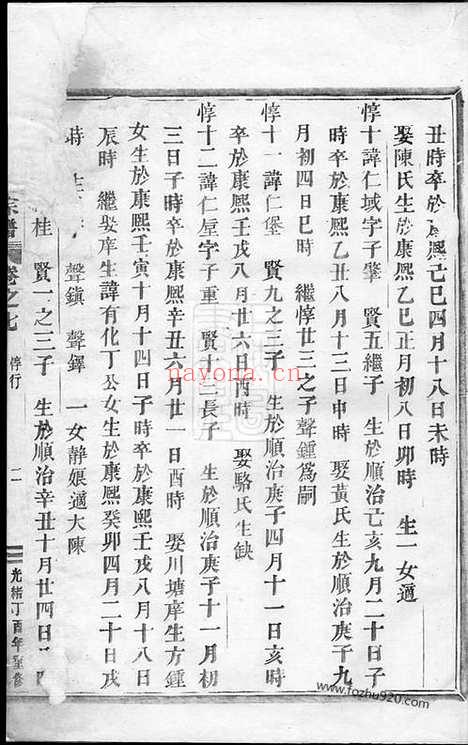 丑時卒於康熙己巳四月十八日未時
娶陳氏生於康熙乙巳正月初八日卯時 生一女適
惇十諱仁域字子肇 賢五繼子 生於順治己亥九月二十日子
時卒於康熙乙丑八月十三日申時 娶黃氏生於順治庚子九
月初四日巳時 繼惇廿三之子聲鍾爲嗣
惇十一諱仁堡 賢九之三子 生於順治庚子四月十一日亥時
卒於康熙壬戌八月廿六日酉時 娶駱氏生缺
惇十二諱仁垕字子重 賢十三長子 生於順治庚子十一月初
三日子時卒於康熙辛丑六月廿一日酉時 娶川塘庠生方鍾
女生於康熙壬寅十月十四日子時卒於康熙壬戌八月十八日
辰時 繼娶庠生諱有化丁公女生於康熙癸卯四月二十日戌
時 生 聲鎮 聲鐸 一女靜娘適大陳
桂 賢一之三子 生於順治辛丑十月廿四日
宗譜 卷之七 惇行 二 光緒丁酉年重修
nayona.cn
www.fozhu920.com